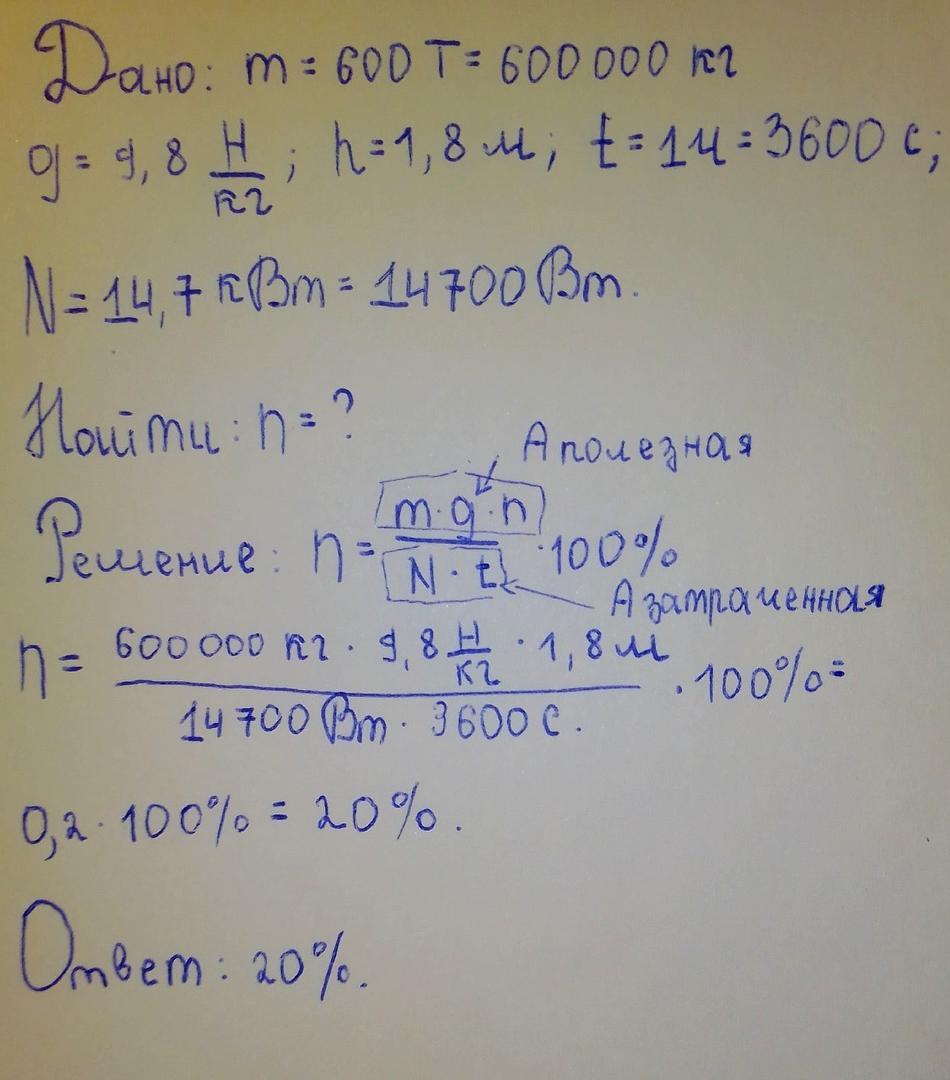 Дано: m = 600 Т = 600 000 кг
g = 9,8 Н/кг ; h = 1,8 м ; t = 1ч = 3600 с;
N = 14,7 кВт = 14700 Вт.
Найти: η = ?
А полезная
Решение: η = m·g·h / N·t ·100%
А затраченная
η = 600 000 кг · 9,8 Н/кг · 1,8 м / 14700 Вт · 3600 с. ·100% =
0,2 · 100% = 20%.
Ответ: 20%.